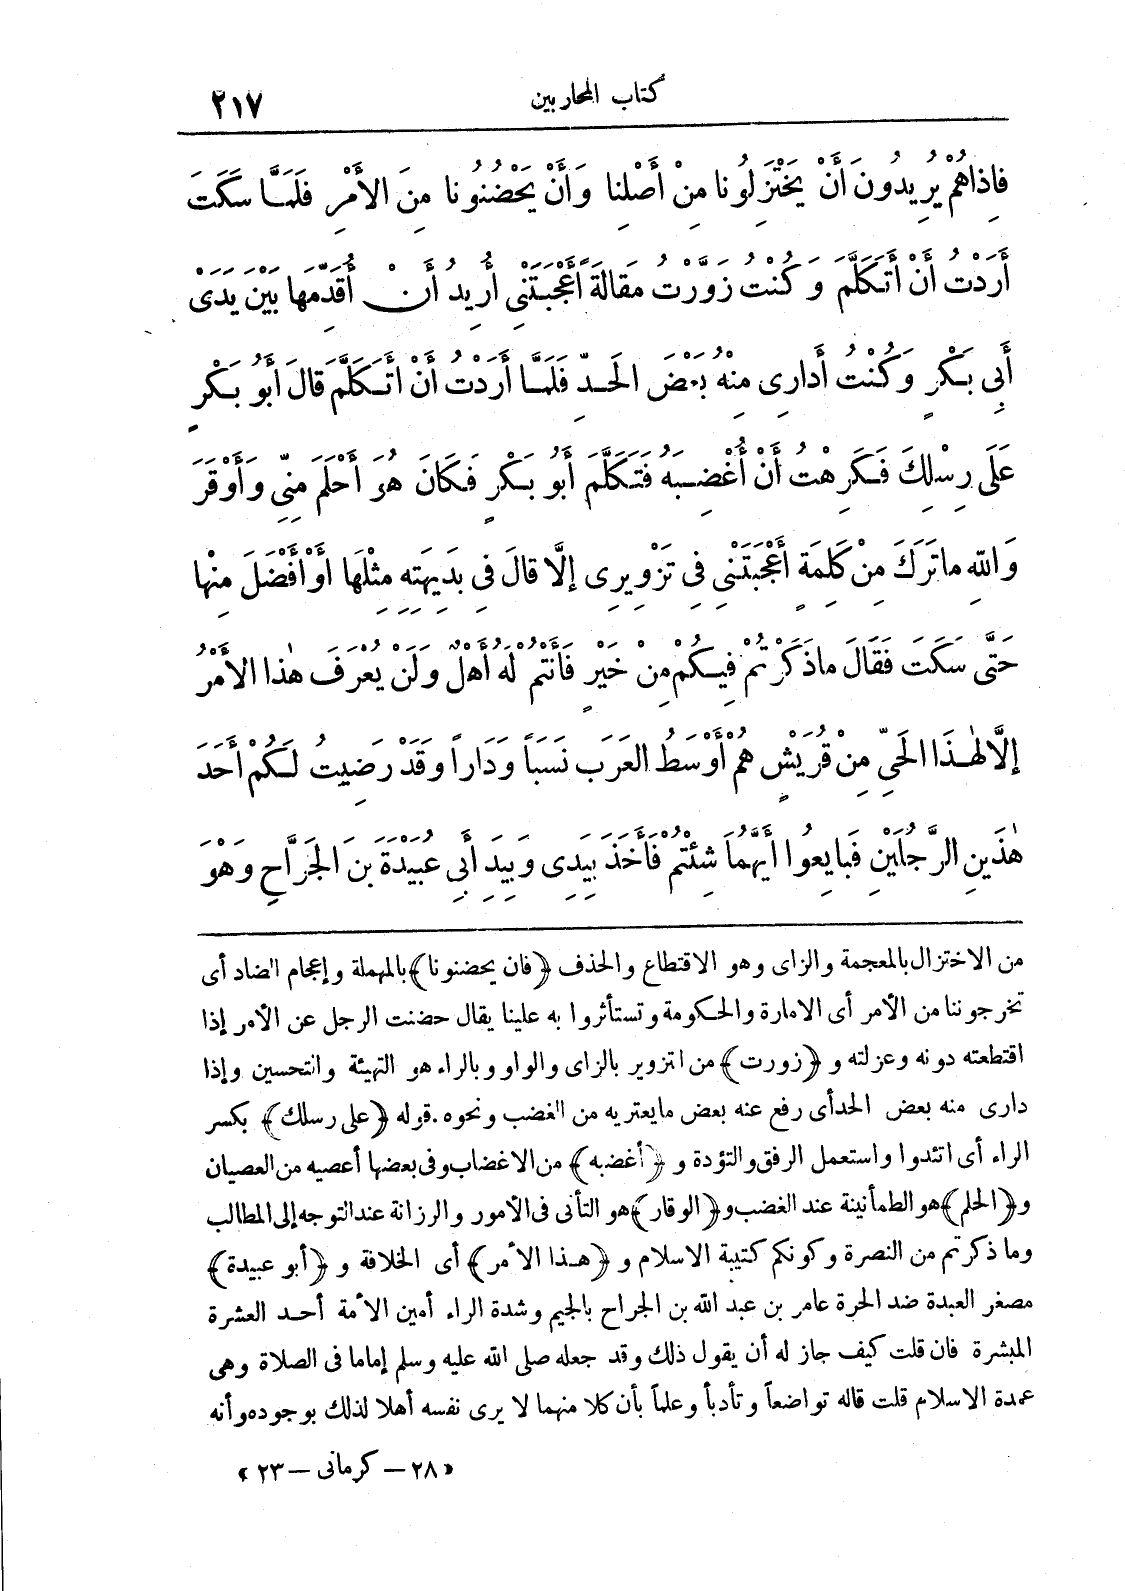 كتاب المحاربين ٢١٧
فَإِذَا هُمْ يُرِيدُونَ أَنْ يَخْتَزِلُونَا مِنْ أَصْلِنَا وَأَنْ يَحْضُنُونَا مِنَ الأَمْرِ فَلَمَّا سَكَتَ
أَرَدْتُ أَنْ أَتَكَلَّمَ وَكُنْتُ زَوَّرْتُ مَقَالَةً أَعْجَبَتْنِي أُرِيدُ أَنْ أُقَدِّمَهَا بَيْنَ يَدَىْ
أَبِي بَكْرٍ وَكُنْتُ أُدَارِى مِنْهُ بَعْضَ الحَدِّ فَلَمَّا أَرَدْتُ أَنْ أَتَكَلَّمَ قَالَ أَبُو بَكْرٍ
عَلَى رِسْلِكَ فَكَرِهْتُ أَنْ أُغْضِبَهُ فَتَكَلَّمَ أَبُو بَكْرٍ فَكَانَ هُوَ أَحْلَمَ مِنِّي وَأَوْقَرَ
وَاللهِ مَا تَرَكَ مِنْ كَلِمَةٍ أَعْجَبَتْنِي فِي تَزْوِيرِى إِلَّا قَالَ فِي بَدِيهَتِهِ مِثْلَهَا أَوْ أَفْضَلَ مِنْهَا
حَتَّى سَكَتَ فَقَالَ مَا ذَكَرْتُمْ فِيكُمْ مِنْ خَيْرٍ فَأَنْتُمْ لَهُ أَهْلٌ وَلَنْ يُعْرَفَ هٰذَا الأَمْرُ
إِلَّا لِهٰذَا الحَيِّ مِنْ قُرَيْشٍ هُمْ أَوْسَطُ العَرَبِ نَسَبًا وَدَارًا وَقَدْ رَضِيتُ لَكُمْ أَحَدَ
هٰذَيْنِ الرَّجُلَيْنِ فَبَايِعُوا أَيَّهُمَا شِئْتُمْ فَأَخَذَ بِيَدِى وَبِيَدِ أَبِي عُبَيْدَةَ بنِ الجَرَّاحِ وَهْوَ
من الاختزال بالمعجمة والزاى وهو الاقتطاع والحذف ﴿فان يحضنونا﴾ بالمهملة وإعجام الضاد أى
تخرجوننا من الأمر أى الامارة والحكومة وتستأثروا به علينا يقال حضنت الرجل عن الأمر إذا
اقتطعته دونه وعزلته و ﴿زورت﴾ من التزوير بالزاى والواو وبالراء هو التهيئة والتحسين وإذا
دارى منه بعض الحد أى رفع عنه بعض ما يعتريه من الغضب ونحوه. قوله ﴿على رسلك﴾ بكسر
الراء أى اتئدوا واستعمل الرفق والتؤدة و ﴿أغضبه﴾ من الاغضاب وفى بعضها أعصيه من العصيان
و ﴿الحلم﴾ هو الطمأنينة عند الغضب و ﴿الوقار﴾ هو التأنى فى الأمور والرزانة عند التوجه إلى المطالب
وما ذكرتم من النصرة وكونكم كتيبة الاسلام و ﴿هذا الأمر﴾ أى الخلافة و ﴿أبو عبيدة﴾
مصغر العبدة ضد الحرة عامر بن عبد الله بن الجراح بالجيم وشدة الراء أمين الأمة أحد العشرة
المبشرة فان قلت كيف جاز له أن يقول ذلك وقد جعله صلى الله عليه وسلم إماما فى الصلاة وهى
عمدة الاسلام قلت قاله تواضعاً وتأدباً وعلماً بأن كلا منهما لا يرى نفسه أهلا لذلك بوجوده وأنه
« ٢٨ – كرمانى – ٢٣ »